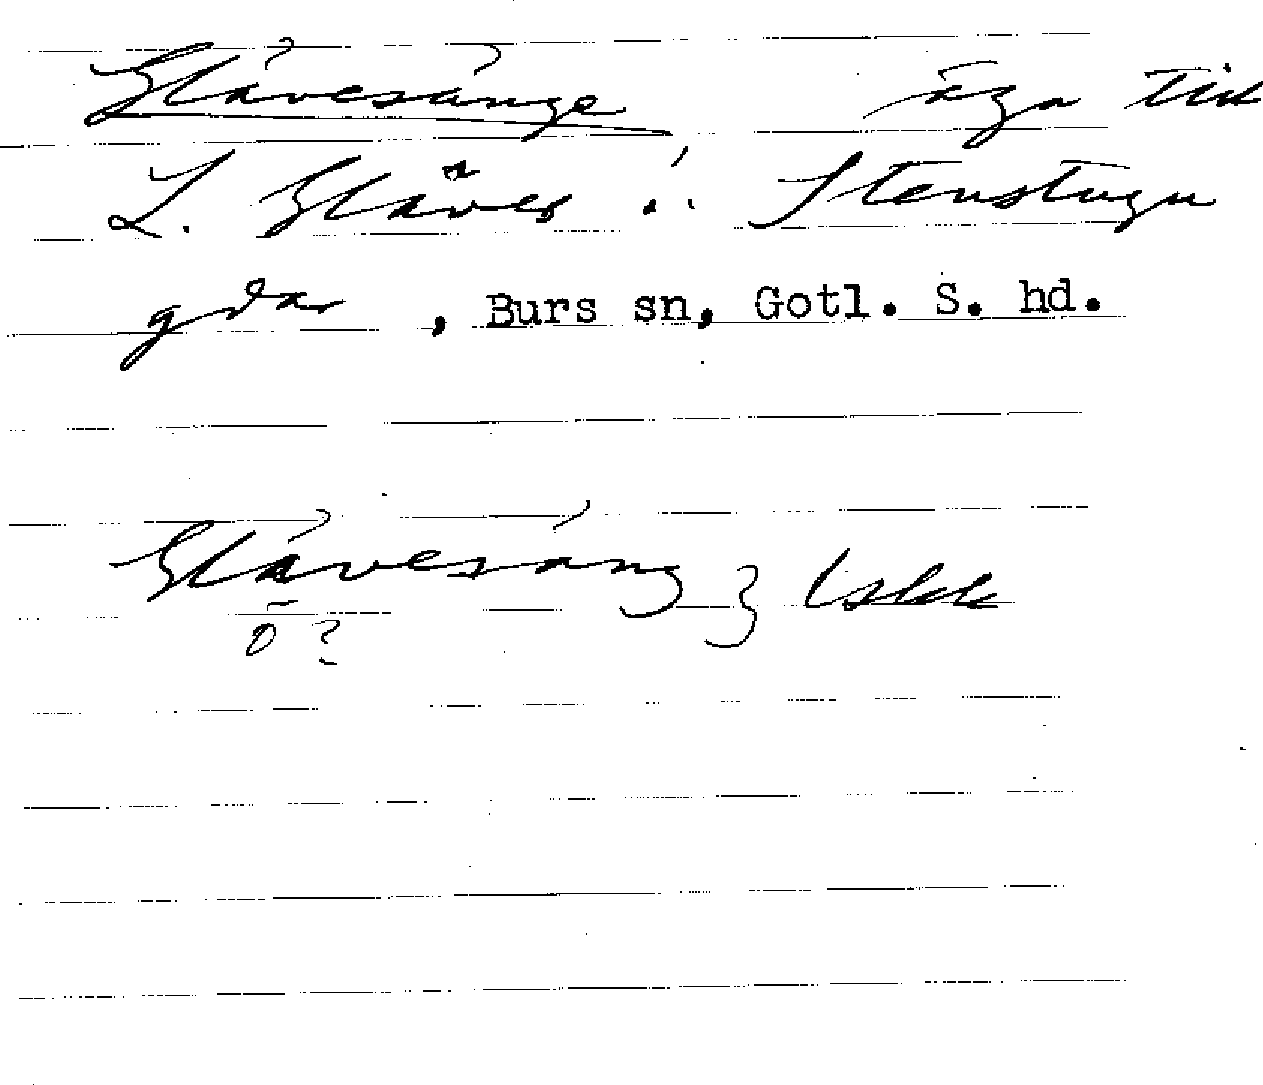 Glavesänge äga till
L. Glaves i Stenstugu
gdar , Burs sn, Gotl. S. hd.
Glavesäng
ö ?